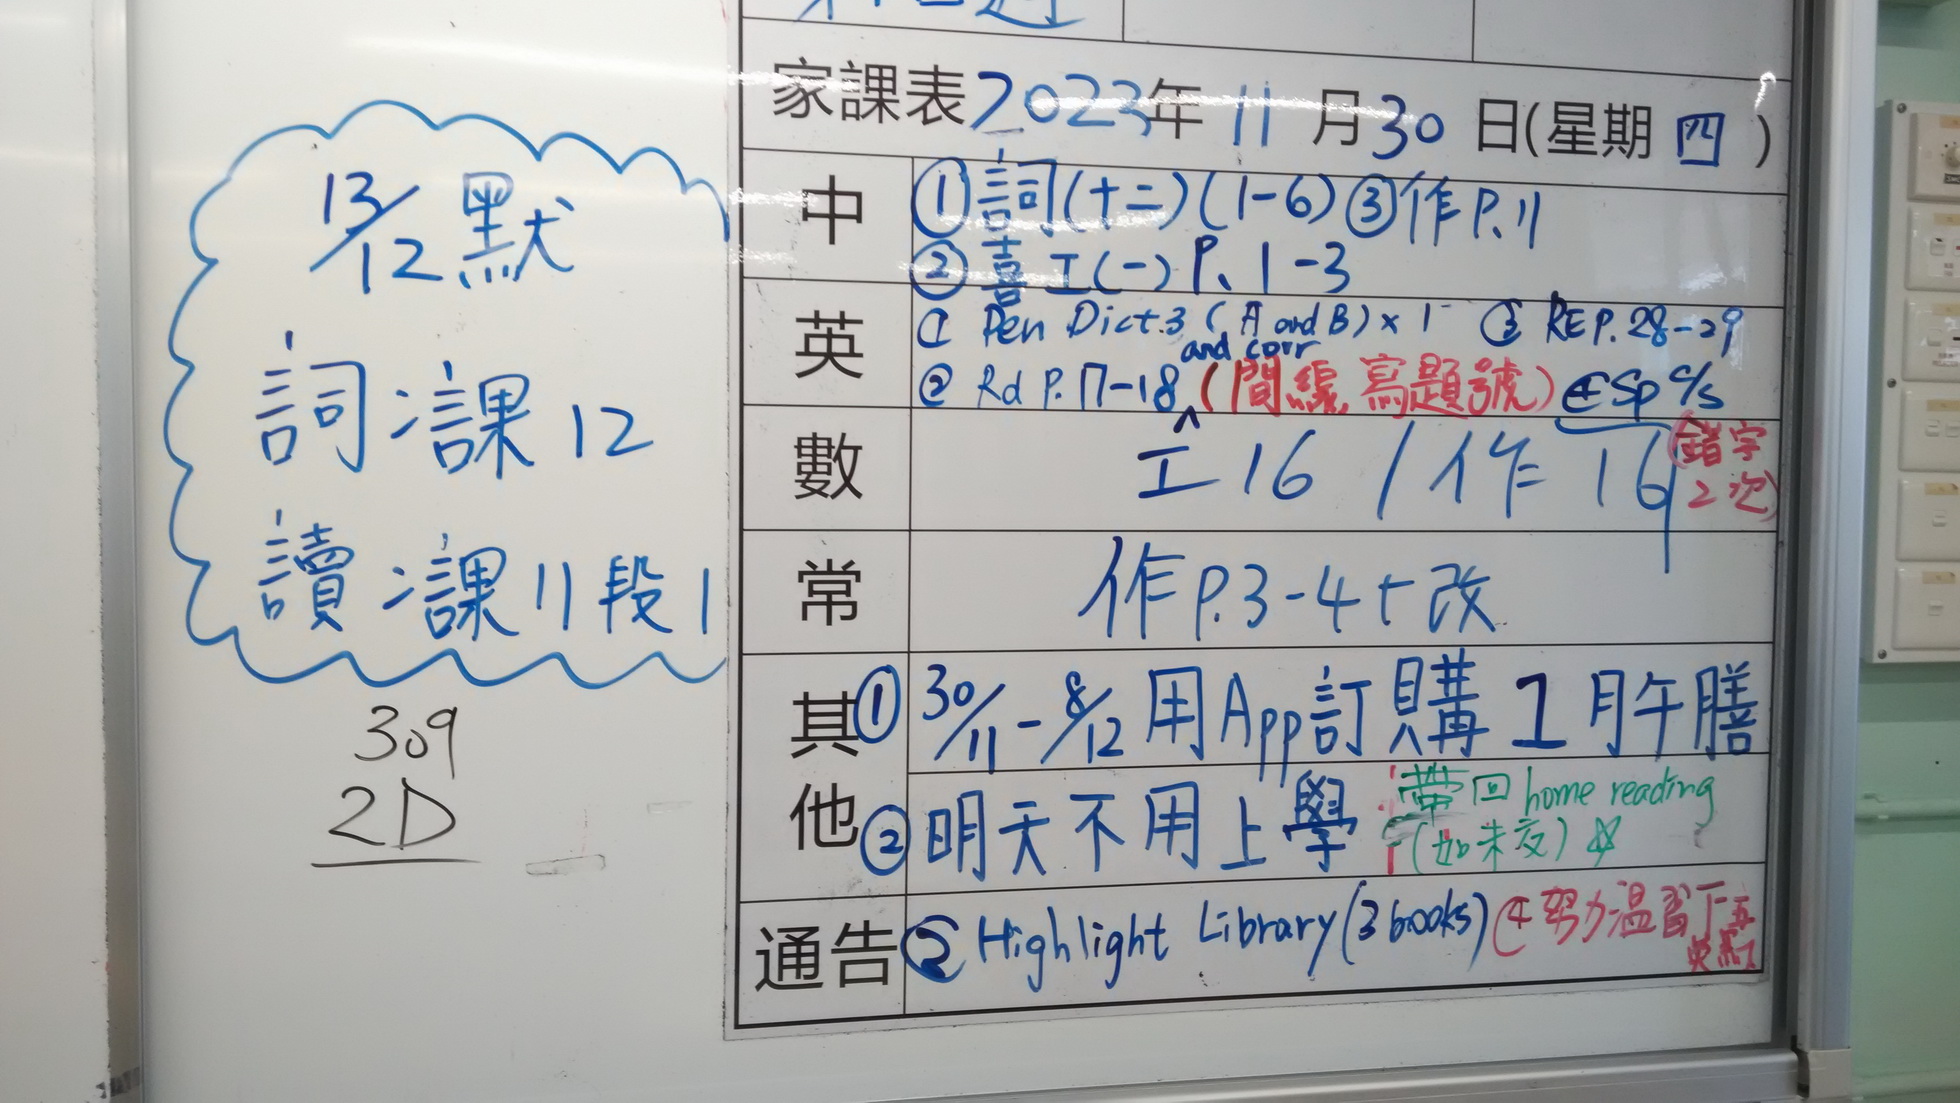 13/12 默
詞:課12
讀:課11段1
309
2D
家課表2023年11月30日(星期四)
中
①詞(十二)(1-6)③作P.11
②喜工(一)P.1-3
英
① Pen Dict.3 (A and B)×1 ③ RE P.28-29
and corr
② Rd P.17-18 (間線,寫題號) ④Sp c/s
(錯字2次)
數
工16 / 作16
常
作P.3-4+改
其他
① 30/11-8/12用App訂購1月午膳
② 明天不用上學 帶回home reading
(如未交)☆
通告
Highlight Library(3 books) ④努力溫習